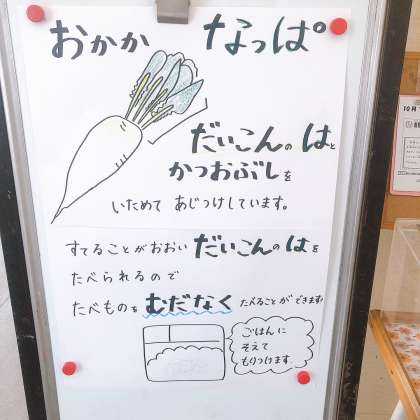 おかか なっぱ
だいこんの はと
かつおぶしを
いためて あじつけしています。
すてることがおおい だいこんのはを
たべられるので
たべものを むだなく たべることができます!
ごはんに
そえて
もりつけます。
10月